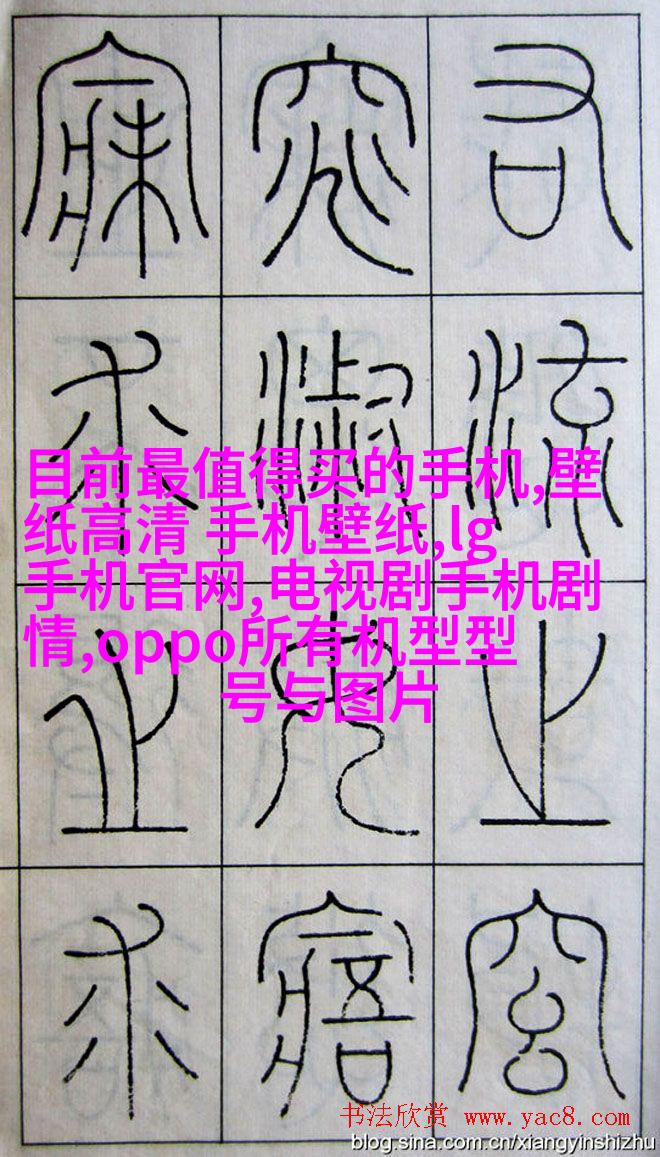 右流之窈
窕淑女寤
寐求之求
目前最值得买的手机,壁
纸高清 手机壁纸,lg
手机官网,电视剧手机剧
情,oppo所有机型型
号与图片
书法欣赏 www.yac8.com
blog.sina.com.cn/xiangyinshizhu